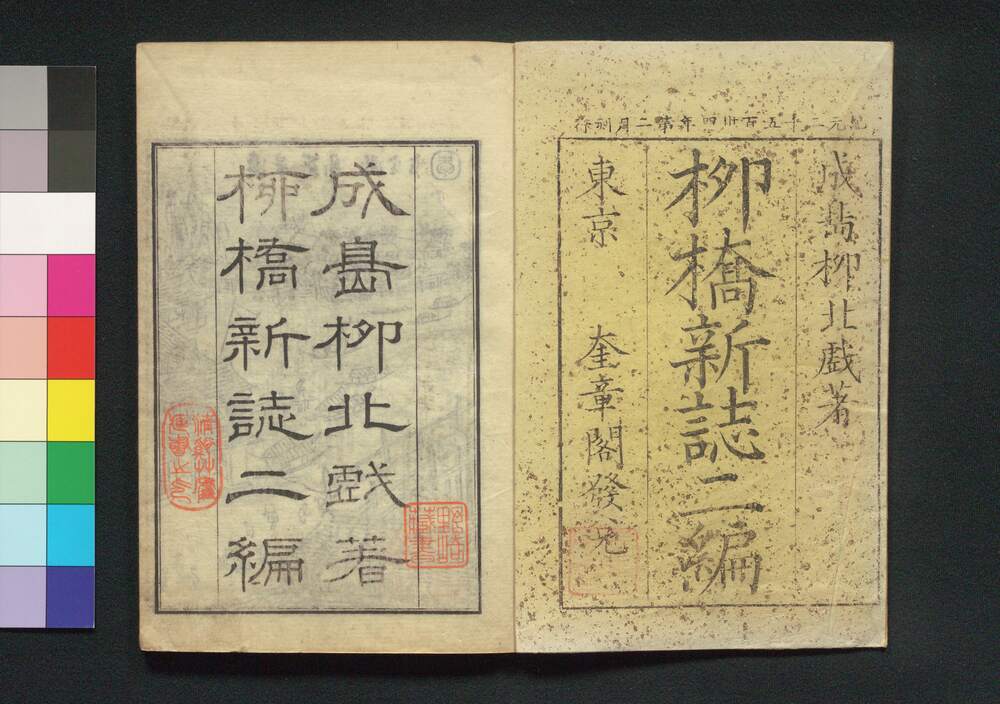 紀元二千五百卅四年第二月刻行
成島柳北戲著
柳橋新誌二編
東京 奎章閣發兌
成島柳北戯著
柳橋新誌二編
野崎藏書